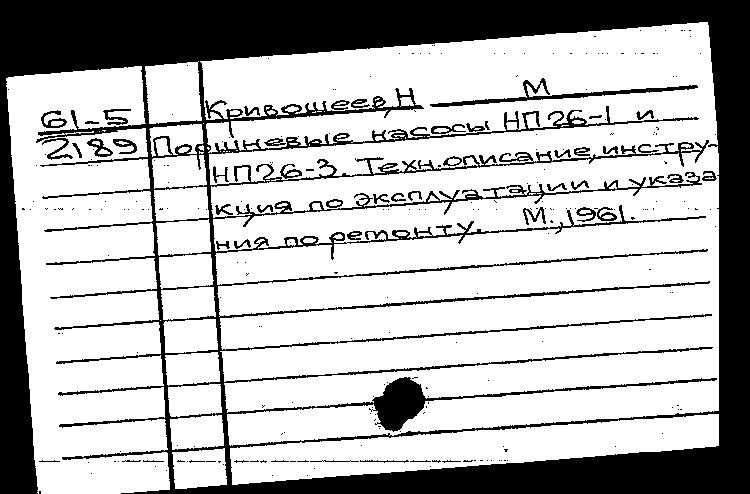 61-5 Кривошеев, Н М
2189 Поршневые насосы НП26-1 и
НП26-3. Техн.описание, инстру-
кция по эксплуатации и указа
ния по ремонту. М., 1961.